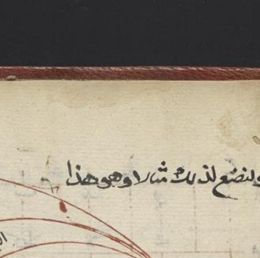 ولنضع لذلك مثالا وهو هذا